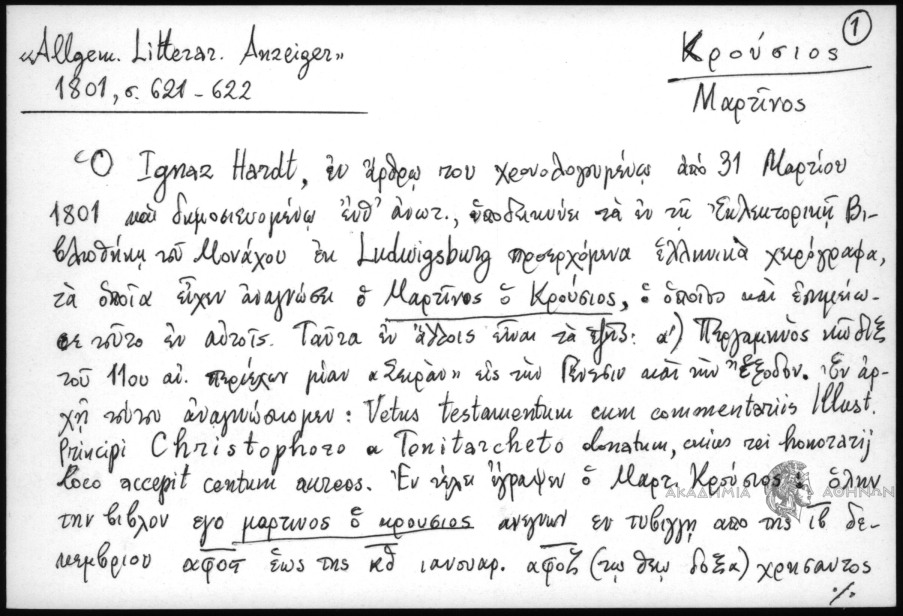 «Allgem. Litterar. Anzeiger»
1801, σ. 621-622
Κρούσιος
1
Μαρτῖνος
Ὁ Ignaz Hardt, ἐν ἄρθρῳ του χρονολογουμένῳ ἀπό 31 Μαρτίου
1801 καὶ δημοσιευομένῳ ἔνθ' ἀνωτ., ὑποδεικνύει τὰ ἐν τῇ Ἐκλεκτορικῇ Βι-
βλιοθήκῃ τοῦ Μονάχου ἐκ Ludwigsburg προερχόμενα ἑλληνικὰ χειρόγραφα,
τὰ ὁποῖα εἶχεν ἀναγνώσει ὁ Μαρτῖνος ὁ Κρούσιος, ὁ ὁποῖος καὶ ἐσημείω-
σε τοῦτο ἐν αὐτοῖς. Ταῦτα ἐν ἄλλοις εἶναι τὰ ἑξῆς: α') Περγαμηνὸς κῶδιξ
τοῦ 11ου αἰ. περιέχων μίαν «Σειρὰν» εἰς τὴν Γένεσιν καὶ τὴν Ἔξοδον. Ἐν ἀρ-
χῇ τούτου ἀναγνώσκομεν: Vetus testamentum cum commentariis Illust.
Principi Christophoro a Tenitarcheto donatum, cuius rei honorarij
loco accepit centum aureos. Ἐν τέλει ἔγραψεν ὁ Μαρτ. Κρούσιος: ὅλην
ΑΚΑΔΗΜΙΑ ΑΘΗΝΩΝ
την βιβλον εγο μαρτινος ὁ κρουσιος ανεγνων εν τυβιγγῃ απο της ιβ δε-
κεμβριου αφοπ ἕως της κθ ιανουαρ. αφοζ (τῳ θεῳ δοξα) χρησαντος
%